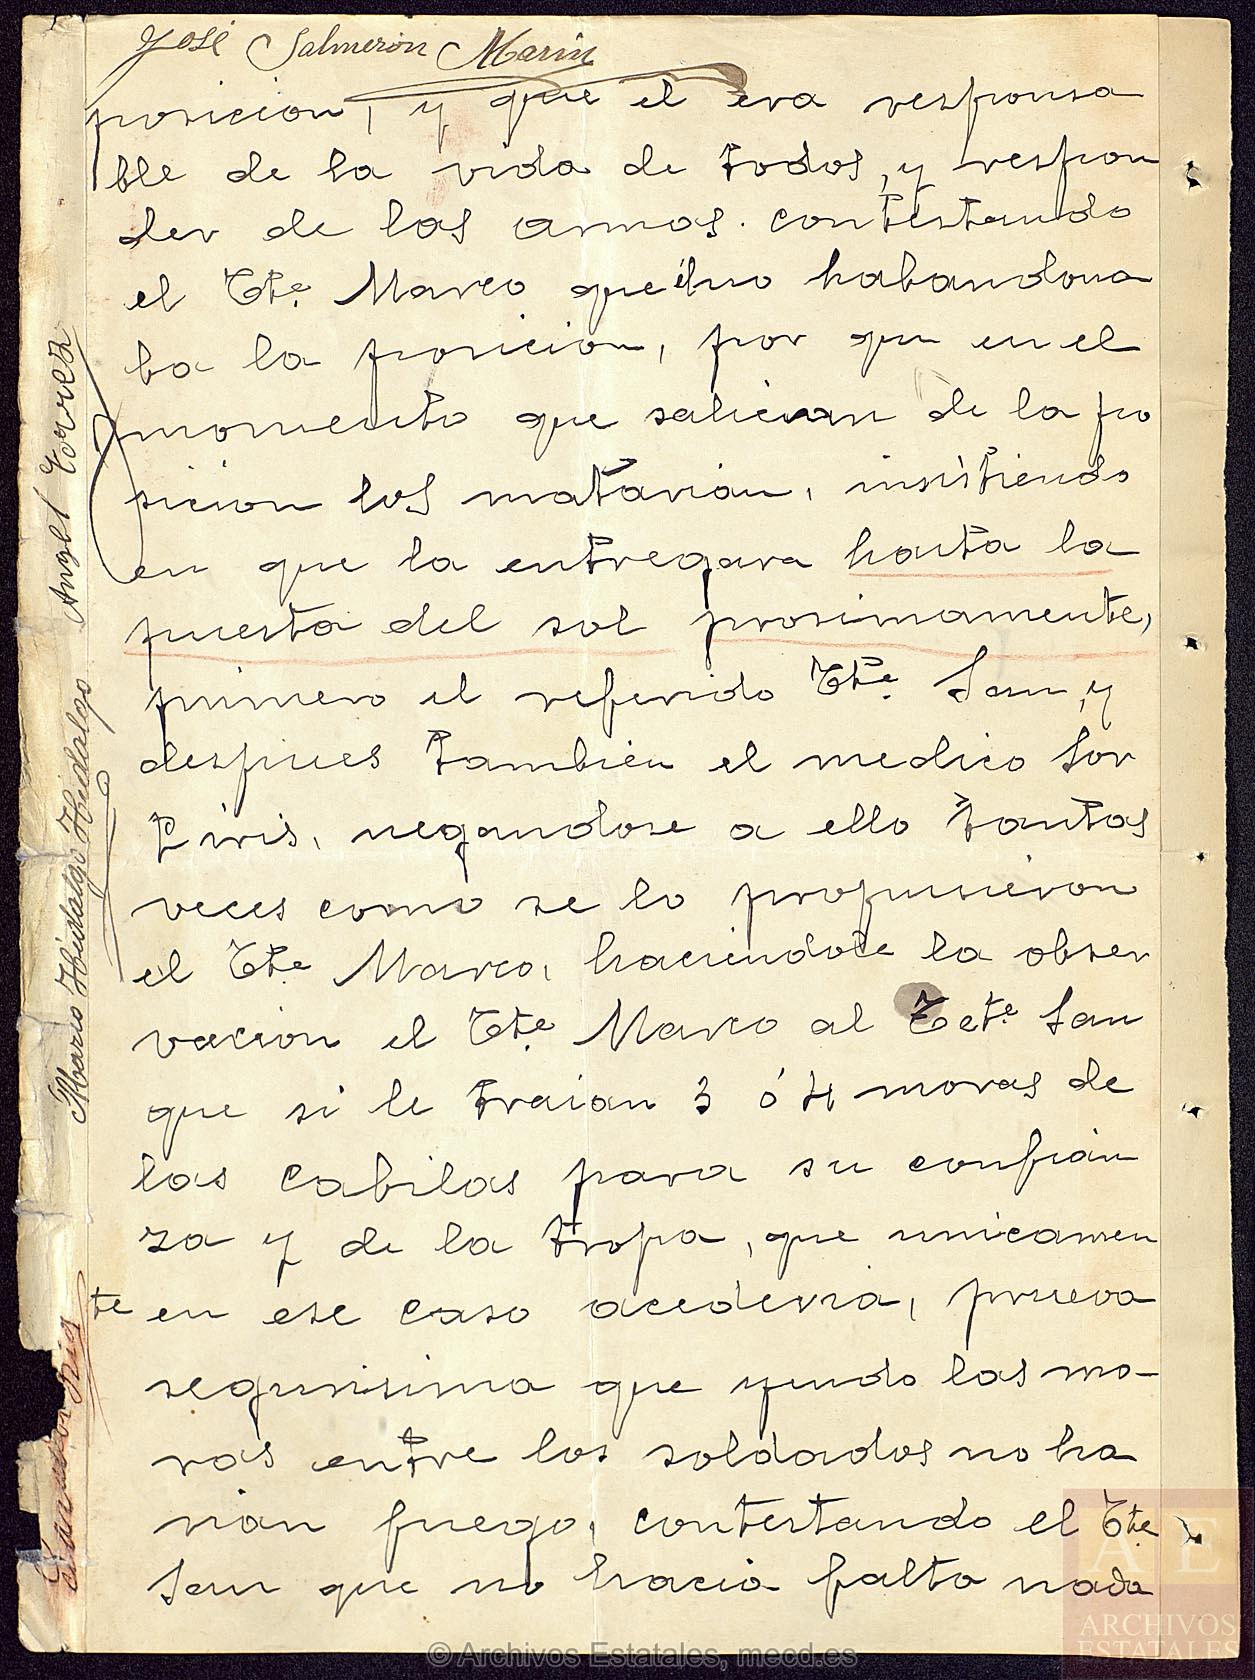 José Salmerón Marín
posicion, y que el era responsa
ble de la vida de todos, y respon
der de las armas. contestando
el Tte. Marco que él no habandona
ba la posicion, por que en el
momento que salieran de la po
sicion los matarian, insistiendo
en que la entregara hasta la
puesta del sol prosimamente,
primero el referido Tte. San, y
despues tambien el medico Sor
Piris, negandose a ello tantas
veces como se lo propusieron
el Tte. Marco, haciendole la obser
vacion el Tte. Marco al Tete. San
que si le traian 3 ó 4 moras de
las cabilas para su confian
za y de la tropa, que unicamen
te en ese caso accederia, prueva
segurisima que yendo las mo-
ras entre los soldados no ha
rian fuego, contestando el Tte.
San que no hacia falta nada
Angel Torres
Mario Hidalgo Hidalgo
© Archivos Estatales, mecd.es
AE
ARCHIVOS
ESTATALES